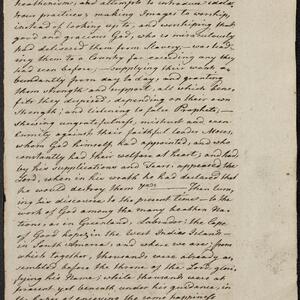 heathenism, and attempts to introduce idola-
from practices, making Images to worship,
instead of looking up to, and worshiping that
good and gracious God, who so miraculously
had delivered them from Slavery — was lead-
ing them to a Country far exceeding any they
had seen before, — supplying their wants a-
bundantly from day to day, and granting
them strength and support, all which bene-
fits they despised, depending on their own
Strength, and listening to false Prophets; —
shewing ungratefulness, mistrust and even
enmity against their faithful leader Moses,
whom God himself had appointed, and who
constantly had their welfare at heart, and had
by his Supplications and Tears, appeased the
Lord, when in his wrath he had declared that
he would destroy them &c. — Then turn-
ing his discourse to the present time — to the
work of God among the many heathen Na-
tions, as in Greenland, Labrador, the Cape
of Good hope, in the West Indies Islands —
in South America, and where we are; from
which together, thousands were already as-
sembled before the throne of the Lord, glori-
fying his Name; while thousands were at
present yet beneath under his guidance, in
the hopes of enjoying the same happiness